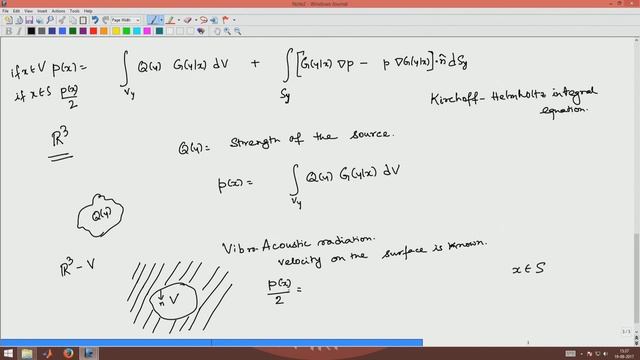 Note2 - Windows Journal
File Edit View Insert Actions Tools Help
Page Width
if x∈V p(x) = ∫_{V_y} Q(y) G(y|x) dV + ∫_{S_y} [G(y|x) ∇p - p ∇G(y|x)]·n̂ dS_y
if x∈S p(x)/2
Kirchoff-Helmholtz integral
equation.
ℝ³
Q(y) = Strength of the source.
p(x) = ∫_{V_y} Q(y) G(y|x) dV
Q(y)
Vibro-Acoustic radiation.
velocity on the surface is known.
ℝ³ - V
n V
p(x)/2 =
x∈S
3/3
15:07
19-09-2017